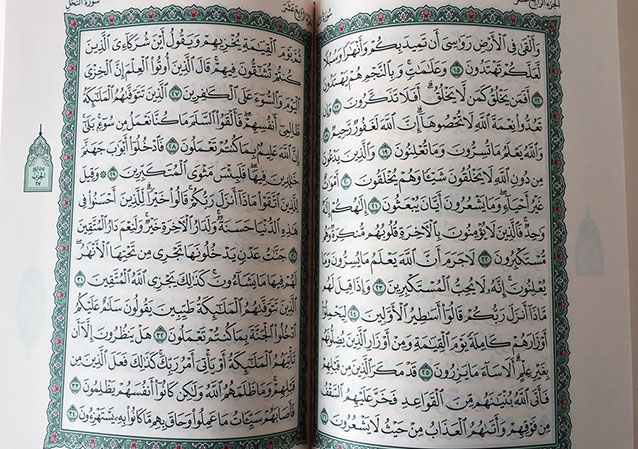 الجُزءُ الرَّابِعَ عَشَرَ
سُورَةُ
وَأَلۡقَىٰ فِي ٱلۡأَرۡضِ رَوَٰسِيَ أَن تَمِيدَ بِكُمۡ وَأَنۡهَٰرٗا وَسُبُلٗا
لَّعَلَّكُمۡ تَهۡتَدُونَ ١٥ وَعَلَٰمَٰتٖۚ وَبِٱلنَّجۡمِ هُمۡ يَهۡتَدُونَ
١٦ أَفَمَن يَخۡلُقُ كَمَن لَّا يَخۡلُقُۚ أَفَلَا تَذَكَّرُونَ ١٧ وَإِن
تَعُدُّواْ نِعۡمَةَ ٱللَّهِ لَا تُحۡصُوهَآۗ إِنَّ ٱللَّهَ لَغَفُورٞ رَّحِيمٞ ١٨
وَٱللَّهُ يَعۡلَمُ مَا تُسِرُّونَ وَمَا تُعۡلِنُونَ ١٩ وَٱلَّذِينَ يَدۡعُونَ
مِن دُونِ ٱللَّهِ لَا يَخۡلُقُونَ شَيۡـٔٗا وَهُمۡ يُخۡلَقُونَ ٢٠ أَمۡوَٰتٌ
غَيۡرُ أَحۡيَآءٖۖ وَمَا يَشۡعُرُونَ أَيَّانَ يُبۡعَثُونَ ٢١ إِلَٰهُكُمۡ إِلَٰهٞ
وَٰحِدٞۚ فَٱلَّذِينَ لَا يُؤۡمِنُونَ بِٱلۡأٓخِرَةِ قُلُوبُهُم مُّنكِرَةٞ وَهُم
مُّسۡتَكۡبِرُونَ ٢٢ لَا جَرَمَ أَنَّ ٱللَّهَ يَعۡلَمُ مَا يُسِرُّونَ وَمَا
يُعۡلِنُونَۚ إِنَّهُۥ لَا يُحِبُّ ٱلۡمُسۡتَكۡبِرِينَ ٢٣ وَإِذَا قِيلَ لَهُم
مَّاذَآ أَنزَلَ رَبُّكُمۡ قَالُوٓاْ أَسَٰطِيرُ ٱلۡأَوَّلِينَ ٢٤ لِيَحۡمِلُوٓاْ
أَوۡزَارَهُمۡ كَامِلَةٗ يَوۡمَ ٱلۡقِيَٰمَةِ وَمِنۡ أَوۡزَارِ ٱلَّذِينَ يُضِلُّونَهُم
بِغَيۡرِ عِلۡمٍۗ أَلَا سَآءَ مَا يَزِرُونَ ٢٥ قَدۡ مَكَرَ ٱلَّذِينَ مِن قَبۡلِهِمۡ
فَأَتَى ٱللَّهُ بُنۡيَٰنَهُم مِّنَ ٱلۡقَوَاعِدِ فَخَرَّ عَلَيۡهِمُ ٱلسَّقۡفُ
مِن فَوۡقِهِمۡ وَأَتَىٰهُمُ ٱلۡعَذَابُ مِنۡ حَيۡثُ لَا يَشۡعُرُونَ ٢٦
الرَّابِعَ عَشَرَ
سُورَةُ النَّحۡلِ
ثُمَّ يَوۡمَ ٱلۡقِيَٰمَةِ يُخۡزِيهِمۡ وَيَقُولُ أَيۡنَ شُرَكَآءِيَ ٱلَّذِينَ
كُنتُمۡ تُشَٰٓقُّونَ فِيهِمۡۚ قَالَ ٱلَّذِينَ أُوتُواْ ٱلۡعِلۡمَ إِنَّ ٱلۡخِزۡيَ
ٱلۡيَوۡمَ وَٱلسُّوٓءَ عَلَى ٱلۡكَٰفِرِينَ ٢٧ ٱلَّذِينَ تَتَوَفَّىٰهُمُ ٱلۡمَلَٰٓئِكَةُ
ظَالِمِيٓ أَنفُسِهِمۡۖ فَأَلۡقَوُاْ ٱلسَّلَمَ مَا كُنَّا نَعۡمَلُ مِن سُوٓءِۭۚ بَلَىٰٓۚ
إِنَّ ٱللَّهَ عَلِيمُۢ بِمَا كُنتُمۡ تَعۡمَلُونَ ٢٨ فَٱدۡخُلُوٓاْ أَبۡوَٰبَ جَهَنَّمَ
خَٰلِدِينَ فِيهَاۖ فَلَبِئۡسَ مَثۡوَى ٱلۡمُتَكَبِّرِينَ ٢٩ ۞ وَقِيلَ
لِلَّذِينَ ٱتَّقَوۡاْ مَاذَآ أَنزَلَ رَبُّكُمۡۚ قَالُواْ خَيۡرٗاۗ لِّلَّذِينَ أَحۡسَنُواْ فِي
هَٰذِهِ ٱلدُّنۡيَا حَسَنَةٞۚ وَلَدَارُ ٱلۡأٓخِرَةِ خَيۡرٞۚ وَلَنِعۡمَ دَارُ ٱلۡمُتَّقِينَ
٣٠ جَنَّٰتُ عَدۡنٖ يَدۡخُلُونَهَا تَجۡرِي مِن تَحۡتِهَا ٱلۡأَنۡهَٰرُۖ
لَهُمۡ فِيهَا مَا يَشَآءُونَۚ كَذَٰلِكَ يَجۡزِي ٱللَّهُ ٱلۡمُتَّقِينَ ٣١
ٱلَّذِينَ تَتَوَفَّىٰهُمُ ٱلۡمَلَٰٓئِكَةُ طَيِّبِينَ يَقُولُونَ سَلَٰمٌ عَلَيۡكُمُ
ٱدۡخُلُواْ ٱلۡجَنَّةَ بِمَا كُنتُمۡ تَعۡمَلُونَ ٣٢ هَلۡ يَنظُرُونَ إِلَّآ أَن
تَأۡتِيَهُمُ ٱلۡمَلَٰٓئِكَةُ أَوۡ يَأۡتِيَ أَمۡرُ رَبِّكَۚ كَذَٰلِكَ فَعَلَ ٱلَّذِينَ مِن
قَبۡلِهِمۡۚ وَمَا ظَلَمَهُمُ ٱللَّهُ وَلَٰكِن كَانُوٓاْ أَنفُسَهُمۡ يَظۡلِمُونَ ٣٣
فَأَصَابَهُمۡ سَيِّـَٔاتُ مَا عَمِلُواْ وَحَاقَ بِهِم مَّا كَانُواْ بِهِۦ يَسۡتَهۡزِءُونَ ٣٤
الحِزۡب
٢٧